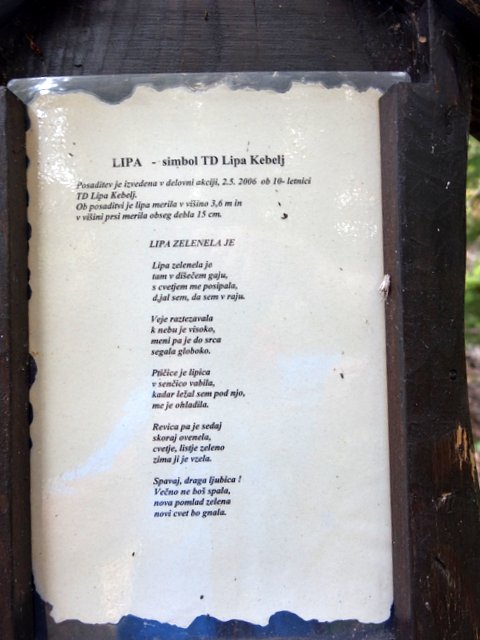 LIPA - simbol TD Lipa Kebelj
Posaditev je izvedena v delovni akciji, 2.5. 2006 ob 10- letnici
TD Lipa Kebelj.
Ob posaditvi je lipa merila v višino 3,6 m in
v višini prsi merila obseg debla 15 cm.
LIPA ZELENELA JE
Lipa zelenela je
tam v dišečem gaju,
s cvetjem me posipala,
djal sem, da sem v raju.
Veje raztezavala
k nebu je visoko,
meni pa je do srca
segala globoko.
Ptičice je lipica
v senčico vabila,
kadar ležal sem pod njo,
me je ohladila.
Revica pa je sedaj
skoraj ovenela,
cvetje, listje zeleno
zima ji je vzela.
Spavaj, draga ljubica !
Večno ne boš spala,
nova pomlad zelena
novi cvet bo gnala.